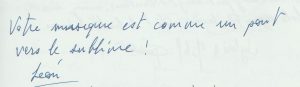 Votre musique est comme un pont
vers le sublime !
Léon